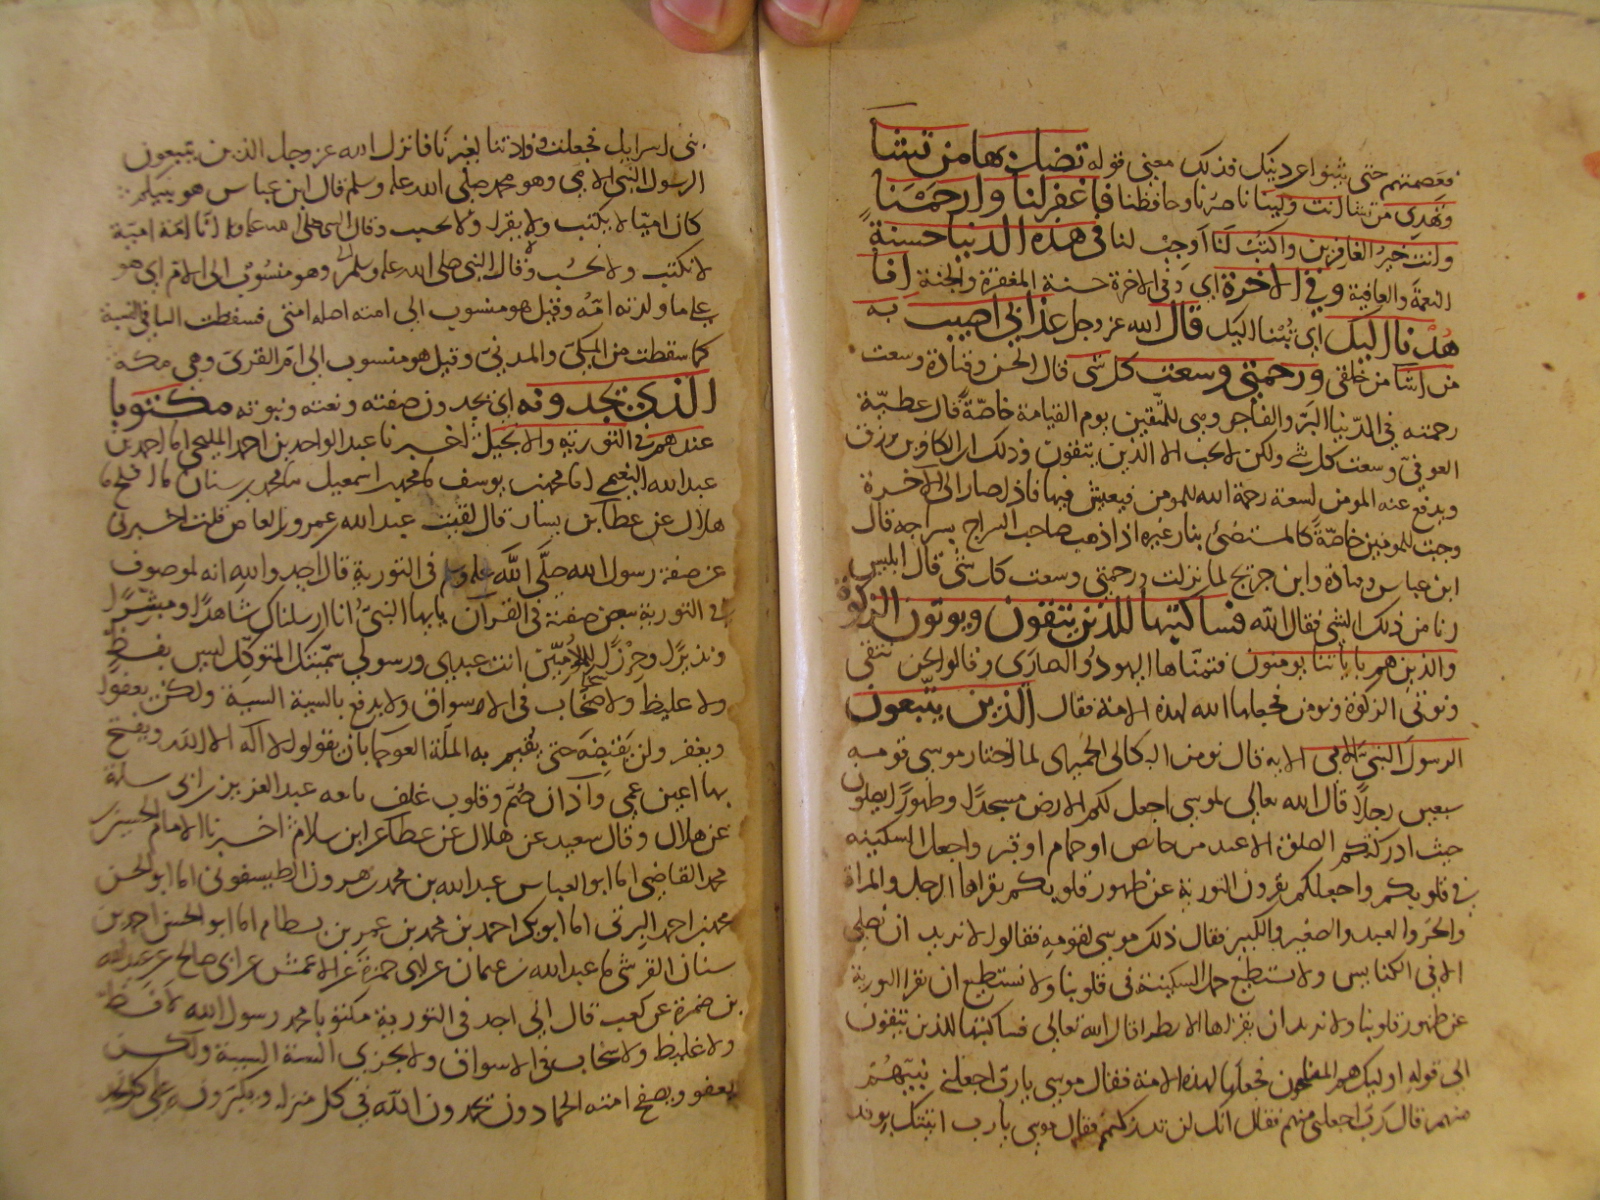 فعصمتهم حتى يثبتوا عن دينك فذلك معنى قوله تضل بها من تشا
وتهدي من تشا انت ولينا ناصرنا وحافظنا فاغفر لنا وارحمنا
وانت خير الغافرين واكتب لنا اوجب لنا في هذه الدنيا حسنة
النعمة والعافية وفي الاخرة اي وفي الاخرة حسنة المغفرة والجنة انا
هدنا اليك اي تبنا اليك قال الله عز وجل عذابي اصيب به
من اشا من خلقي ورحمتي وسعت كل شى قال الحسن وقتادة وسعت
رحمته في الدنيا البر والفاجر وهى للمتقين يوم القيامة خاصة قال عطية
العوفي وسعت كل شى ولكن لا تجب الا للذين يتقون وذلك ان الكافر يرزق
ويدفع عنه المومن لسعة رحمة الله للمومن فيعيش فيها فاذا صار الى الاخرة
وجبت للمومنين خاصة كالمستضئ بنار غيره اذا ذهب صاحب السراج بسراجه قال
ابن عباس وقتادة وابن جريج لما نزلت ورحمتي وسعت كل شى قال ابليس
انا من ذلك الشى فقال الله فساكتبها للذين يتقون ويوتون الزكوة
والذين هم باياتنا يومنون فتمناها اليهود والنصارى وقالوا نحن نتقي
ونوتي الزكوة ونومن فجعلها الله لهذه الامة فقال الذين يتبعون
الرسول النبي الامي الاية قال نوف البكالى الحميرى لما اختار موسى قومه
سبعين رجلا قال الله تعالى لموسى اجعل لكم الارض مسجدا وطهورا تصلون
حيث ادركتكم الصلوة الا عند مرحاض او حمام او قبر واجعل السكينة
في قلوبكم واجعلكم تقرون التورية عن ظهور قلوبكم يقراها الرجل والمراة
والحر والعبد والصغير والكبير فقال ذلك موسى لقومه فقالوا لا نريد ان نصلي
الا في الكنايس ولا نستطيع حمل السكينة في قلوبنا ولا نستطيع ان نقرا التورية
عن ظهور قلوبنا ولا نريد ان نقراها الا نظرا قال الله تعالى فساكتبها للذين يتقون
الى قوله اوليك هم المفلحون فجعلها لهذه الامة فقال موسى يا رب اجعلني نبيهم
منهم قال رب اجعلني منهم فقال انك لن تدركهم فقال موسى يا رب اتيتك بوفد
بني اسرايل فجعلت وفادتنا لغيرنا فانزل الله عز وجل الذين يتبعون
الرسول النبي الامي وهو محمد صلى الله عليه وسلم قال ابن عباس هو نبيكم
كان اميا لا يكتب ولا يقرا ولا يحسب وقال النبي صلى الله عليه وسلم انا امة امية
لا نكتب ولا نحسب وقال النبي صلى الله عليه وسلم وهو منسوب الى الام اي هو
على ما ولدته امه وقيل هو منسوب الى امته اصله امتي فسقطت التا في النسبة
كما سقطت من المكي والمدني وقيل هو منسوب الى ام القرى وهى مكة
الذى يجدونه اي يجدون صفته ونعته ونبوته مكتوبا
عندهم في التورية والانجيل اخبرنا عبد الواحد بن احمد المليحي انا احمد بن
عبد الله النعيمي انا محمد بن يوسف نا محمد بن اسمعيل نا محمد بن سنان نا فليح نا
هلال عن عطا بن يسار قال لقيت عبد الله بن عمرو بن العاص قلت اخبرني
عن صفة رسول الله صلى الله عليه وسلم في التورية قال اجل والله انه لموصوف
في التورية ببعض صفته في القران يايها النبي انا ارسلناك شاهدا ومبشرا
ونذيرا وحرزا للاميين انت عبدي ورسولي سميتك المتوكل ليس بفظ
ولا غليظ ولا صخاب في الاسواق ولا يدفع بالسية السية ولكن يعفو
ويغفر ولن يقبضه حتى يقيم به الملة العوجا بان يقولوا لا اله الا الله ويفتح
بها اعين عمي واذان صم وقلوب غلف تابعه عبد العزيز بن ابي سلمة
عن هلال وقال سعيد عن هلال عن عطا عن ابن سلام اخبرنا الامام الحسين بن
محمد القاضي انا ابو العباس عبد الله بن محمد بن هرون الطيسفوني انا ابو الحسن
محمد بن احمد الترابى انا ابو بكر احمد بن محمد بن عمر بن بسطام انا ابو الحسن احمد بن
سنان القرشي نا عبد الله بن عثمان عن ابى حمزة عن الاعمش عن ابى صالح عن عبد الله
بن ضمرة عن كعب قال اني اجد في التورية مكتوبا محمد رسول الله لا فظ
ولا غليظ ولا سخاب في الاسواق ولا يجزي السية السية ولكن
يعفو ويصفح امته الحمادون يحمدون الله في كل منزلة ويكبرونه على كل نجد